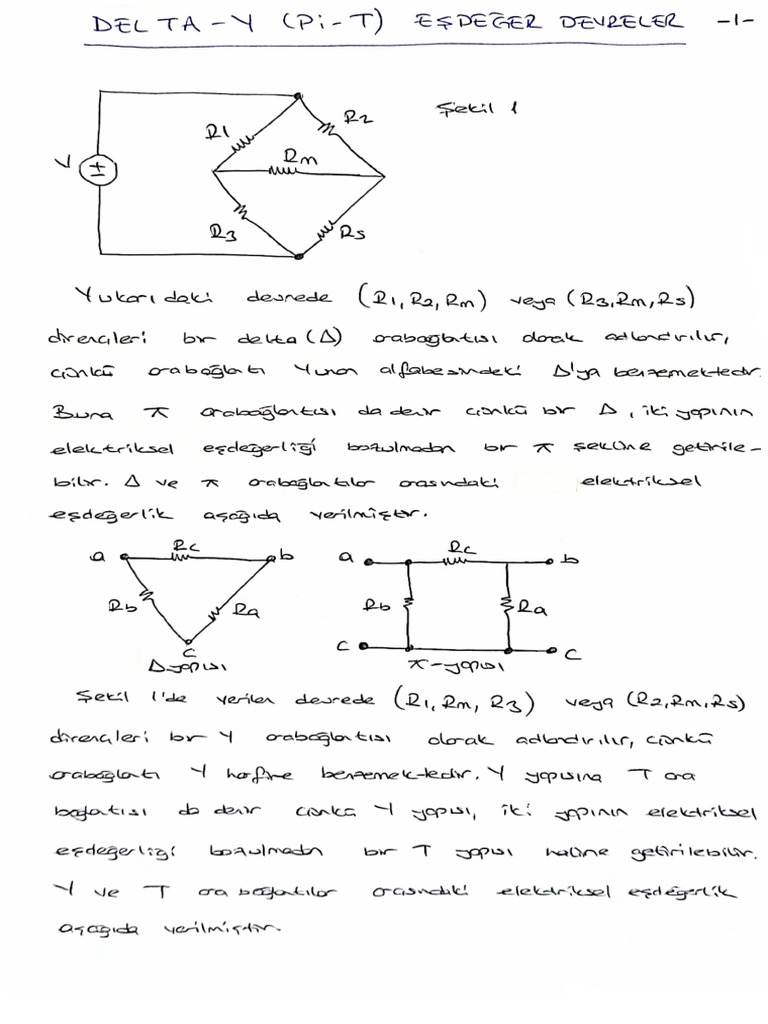 DELTA-Y (Pi-T) EŞDEĞER DEVRELER -1-
Şekil 1
R1
R2
Rm
V
R3
Rs
Yukarıdaki devrede (R1, R2, Rm) veya (R3, Rm, Rs)
dirençleri bir delta (Δ) arabağlatısı olarak adlandırılır,
çünkü arabağlatı Yunan alfabesindeki Δ'ya benzemektedir.
Buna π arabağlantısı da denir çünkü bir Δ, iki yapının
elektriksel eşdeğerliği bozulmadan bir π şekline getirile-
bilir. Δ ve π arabağlatılar arasındaki elektriksel
eşdeğerlik aşağıda verilmiştir.
a Rc b
Rb Ra
c
Δ-yapısı
a Rc b
Rb Ra
c c
π-yapısı
Şekil 1'de verilen devrede (R1, Rm, R3) veya (R2, Rm, Rs)
dirençleri bir Y arabağlatısı olarak adlandırılır, çünkü
arabağlatı Y harfine benzemektedir. Y yapısına T ara
bağlatısı da denir çünkü Y yapısı, iki yapının elektriksel
eşdeğerliği bozulmadan bir T yapısı haline getirilebilir.
Y ve T ara bağlatılar arasındaki elektriksel eşdeğerlik
aşağıda verilmiştir.